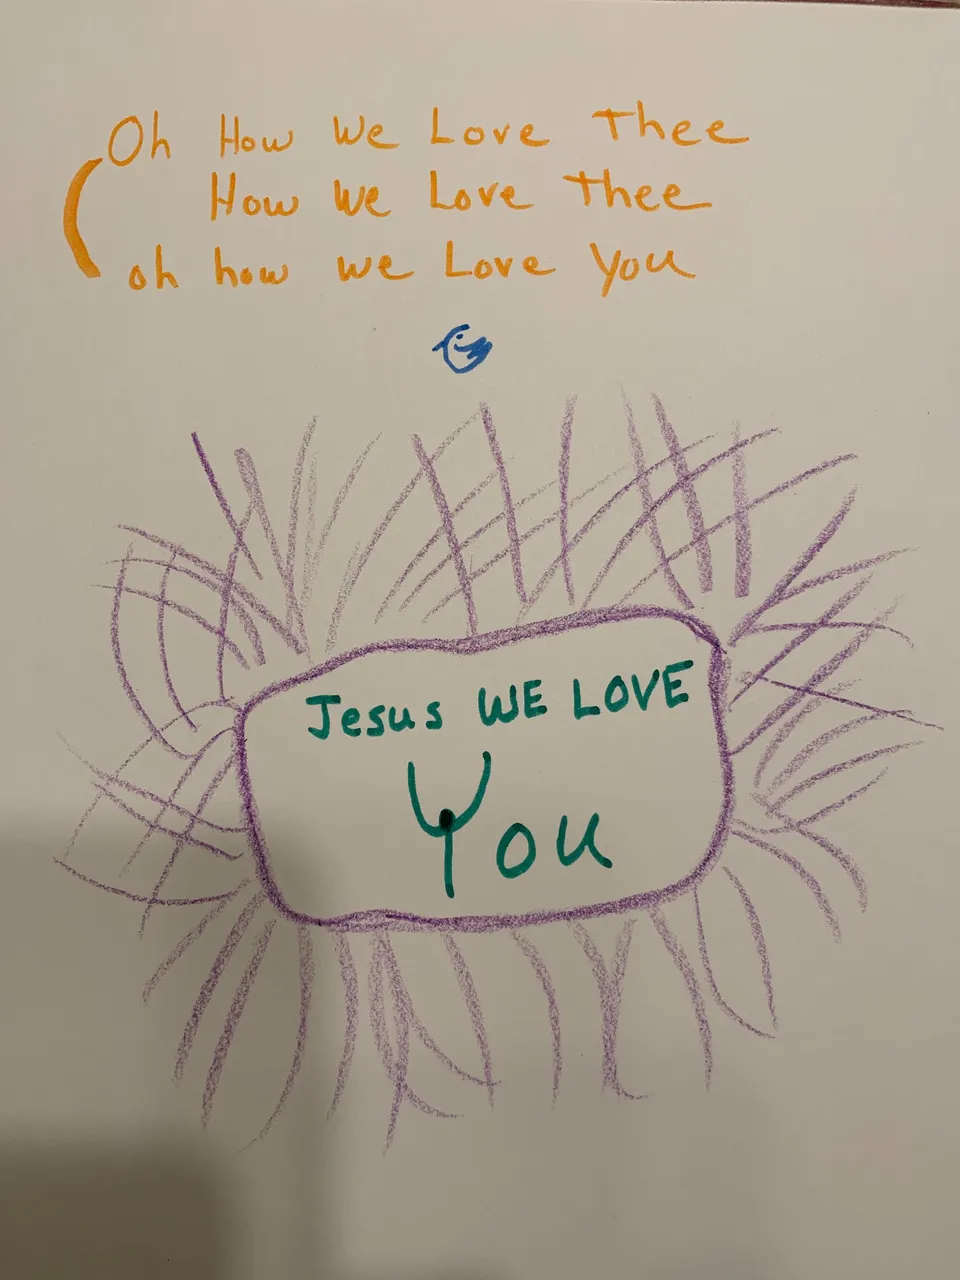 Oh How We Love Thee
How We Love Thee
oh how we Love You
Jesus WE LOVE
You